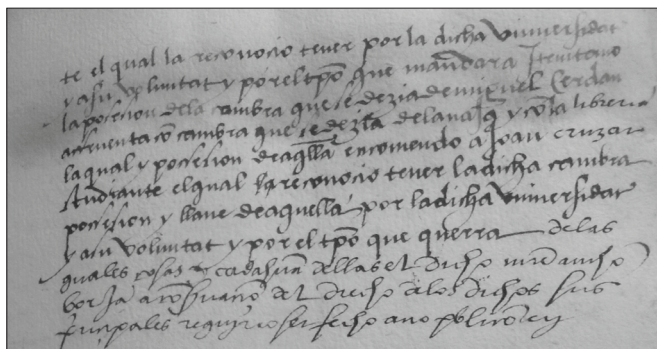 te el qual la reconocio tener por la dicha vniuersidat
y a su voluntat y por el tpõ que mandara
la posesion dela cambra que se dezia de miguel Cerdan
cõ cambra que se dezia dela y cõ la libreria
la qual y possesion de aq̃lla encomendo a Joan cruzar
studiante el qual la reconocio tener la dicha cambra
possesion y llaue de aquella por la dicha vniuersidat
y a su voluntat y por el tpõ que querra de las
quales cosas y cada huna dellas el dicho
a cõseruacio del drecho a los dichos sus
principales requirio ser fecho